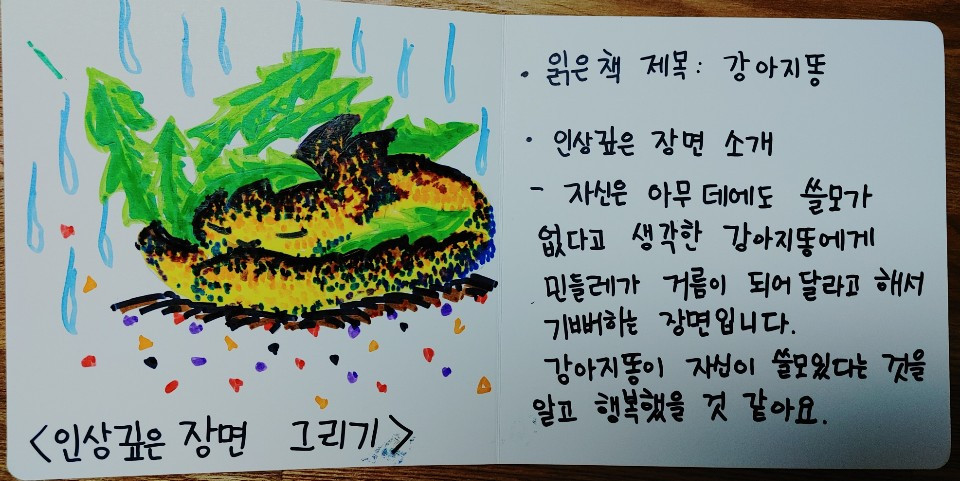 <인상깊은 장면 그리기>
· 읽은 책 제목: 강아지똥
· 인상깊은 장면 소개
- 자신은 아무 데에도 쓸모가
없다고 생각한 강아지똥에게
민들레가 거름이 되어 달라고 해서
기뻐하는 장면입니다.
강아지똥이 자신이 쓸모있다는 것을
알고 행복했을 것 같아요.